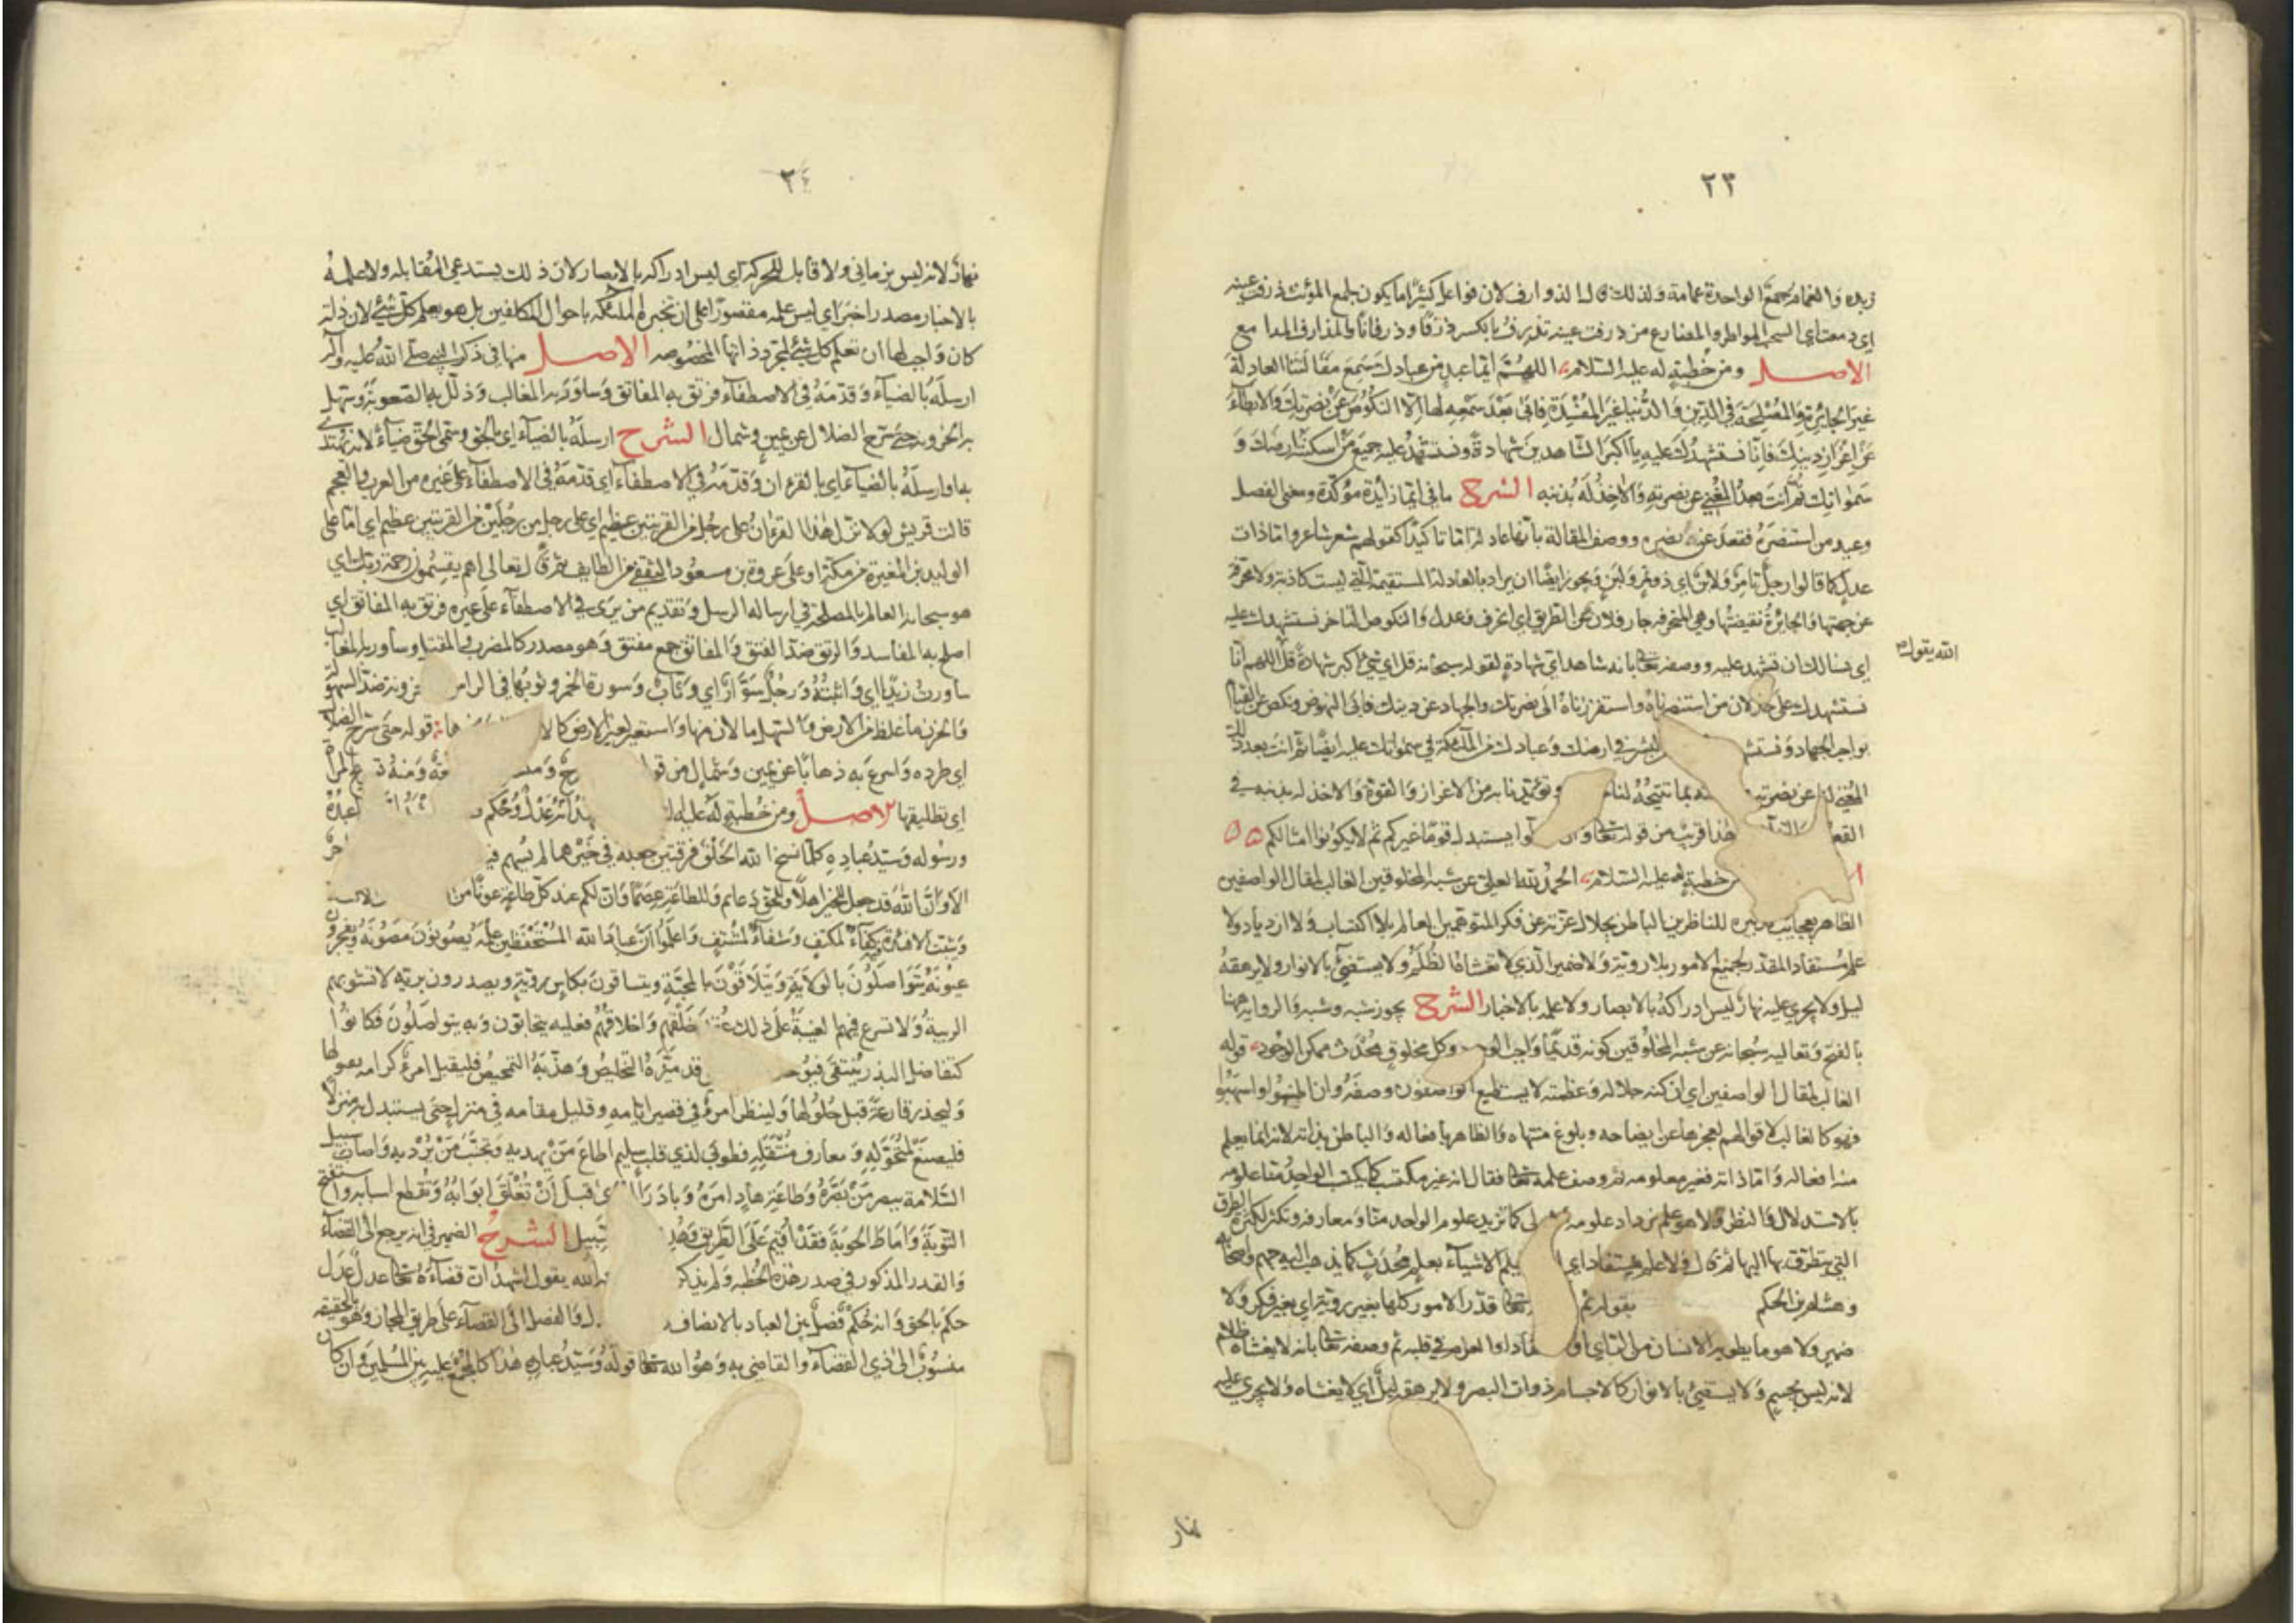 ٢٣
زبده والغمام جمع الواحدة غمامة ولذلك قال الذوارف لان فواعل كثيرا ما يكون لجمع المؤنث ذرفت عينه
اي دمعت اي السحب المواطر والمضارع من ذرفت عينه تذرف بالكسر ذرفا وذرفانا والمذارف المدامع
الاصل ومن خطبة له عليه السلام اللهم ايما عبد من عبادك سمع مقالتنا العادلة
غير الجائرة والمصلحة في الدين والدنيا غير المفسدة فابى بعد سمعه لها الا النكوص عن نصرتك والابطاء
عن اعزاز دينك فانا نستشهدك عليه يا اكبر الشاهدين شهادة ونستشهد عليه جميع من اسكنته ارضك و
سمواتك ثم انت بعد المغني عن نصرته والاخذ له بذنبه الشرح ما في ايما زائدة مؤكدة ومعنى الفصل
وعيد من استنصره فقعد عن نصره ووصف المقالة بانها عادلة اما تاكيدا كقولهم شعر شاعر واما ذات
عدل كما قالوا رجل تامر ولابن اي ذو تمر ولبن ويجوز ايضا ان يراد بالعادلة المستقيمة التي ليست كاذبة ولا محرفة
عن جهتها والجائرة نقيضتها وهي المنحرفة جار فلان عن الطريق اي انحرف وعدل والنكوص التاخر نستشهدك عليه
اي نسالك ان تشهد عليه ووصفه تعالى بانه شاهد اي شهادة لقوله سبحانه قل اي شئ اكبر شهادة قل اللهم انا
الله يقول
نستشهدك على خذلان من استنصرناه واستفززناه الى نصرتك والجهاد عن دينك فابى النهوض ونكص عن القيام
بواجب الجهاد ونستشهد البشر في ارضك وعبادك من الملائكة في سمواتك عليه ايضا ثم انت بعد ذلك
المغني لنا عن نصرته بما تتيحه لنا وتؤيدنا به من الاعزاز والقوة والاخذ له بذنبه في
القعود هذا قريب من قوله تعالى وان يستبدل قوما غيركم ثم لا يكونوا امثالكم
خطبة له عليه السلام الحمد لله العلي عن شبه المخلوقين الغالب لمقال الواصفين
الظاهر بعجائب تدبيره للناظرين الباطن بجلال عزته عن فكر المتوهمين العالم بلا اكتساب ولا ازدياد ولا
علم مستفاد المقدر لجميع الامور بلا روية ولا ضمير الذي لا تغشاه الظلم ولا يستضئ بالانوار ولا يرهقه
ليل ولا يجري عليه نهار ليس ادراكه بالابصار ولا علمه بالاخبار الشرح يجوز شبه وشبه والرواية ههنا
بالفتح وتعاليه سبحانه عن شبه المخلوقين كونه قديما واجب الوجود وكل مخلوق محدث ممكن الوجود قوله
الغالب لمقال الواصفين اي ان كنه جلاله وعظمته لا يستطيع الواصفون وصفه وان اطنبوا واسهبوا
فهو كالغالب لاقوالهم لعجزها عن ايضاحه وبلوغ منتهاه والظاهر بافعاله والباطن بذاته لانه انما يعلم
منه افعاله واما ذاته فغير معلومة ثم وصف علمه تعالى فقال انه غير مكتسب كما يكتسب الواحد منا علومه
بالاستدلال والنظر ولا هو علم يزداد علومه كما تزيد علوم الواحد منا ومعارفه وتكثر لكثرة الطرق
التي يتطرق بها اليها ثم قال ولا علم مستفاد اي يعلم الاشياء بعلم محدث كما يذهب اليه جهم واصحابه
وهشام بن الحكم بقوله ثم تعالى قدر الامور كلها بغير روية اي بغير فكر ولا
ضمير ولا هو ما يطويه الانسان من الراي او الاعتقاد او العزم في قلبه ثم وصفه تعالى بانه لا يغشاه ظلام
لانه ليس بجسم ولا يستضئ بالانوار كالاجسام ذوات البصر ولا يرهقه ليل اي لا يغشاه ولا يجري عليه
نهار
٢٤
نهار لانه ليس بزماني ولا قابل للحركة اي ليس ادراكه بالابصار لان ذلك يستدعي المقابلة ولا علمه
بالاخبار مصدر اخبر اي ليس علمه مقصورا على ان تخبره الملائكة باحوال المكلفين بل هو يعلم كل شئ لان ذاته
كان واجب لها ان تعلم كل شئ لمجرد ذاتها المخصوصة الاصل منها في ذكر النبي صلى الله عليه وآله
ارسله بالضياء وقدمه في الاصطفاء فرتق به المفاتق وساور به المغالب وذلل به الصعوبة وسهل
به الحزونة حتى سرح الضلال عن يمين وشمال الشرح ارسله بالضياء اي بالحق وسمى الحق ضياء لانه يهتدى
به او ارسله بالضياء اي بالقرءان وقدمه في الاصطفاء اي قدمه في الاصطفاء على غيره من العرب والعجم
قالت قريش لولا نزل هذا القرءان على رجل من القريتين عظيم اي على رجل من رجلين من القريتين عظيم اي اما على
الوليد بن المغيرة من مكة او على عروة بن مسعود الثقفي من الطايف ثم قال تعالى اهم يقسمون رحمة ربك اي
هو سبحانه العالم بالمصلحة في ارساله الرسل وتقديم من يرى في الاصطفاء على غيره فرتق به المفاتق اي
اصلح به المفاسد والرتق ضد الفتق والمفاتق جمع مفتق وهو مصدر كالمضرب والمقتل وساور به المغالب
ساورت زيدا اي واثبته ورجل سوار اي وثاب وسورة الخمر وثوبها في الراس والحزونة ضد السهولة
والحزن ما غلظ من الارض والسهل ما لان منها واستعير لغير الارض كالا قوله حتى سرح الضلال
اي طرده واسرع به ذهابا عن يمين وشمال من قولهم ومنه تسريح المراة
اي تطليقها الاصل ومن خطبة له عليه السلام عدل وحكم عبده
ورسوله وسيد عباده كلما نسخ الله الخلق فرقتين جعله في خيرهما لم يسهم فيه
الا وان الله قد جعل للخير اهلا وللحق دعائم وللطاعة عصما وان لكم عند كل طاعة عونا من
ويثبت الافئدة فيه كفاء لمكتف وشفاء لمشتف واعلموا ان عباد الله المستحفظين علمه يصونون مصونه ويفجرون
عيونه يتواصلون بالولاية ويتلاقون بالمحبة ويتساقون بكاس روية ويصدرون برية لا تشوبهم
الريبة ولا تسرع فيهم الغيبة على ذلك عقد خلقهم واخلاقهم فعليه يتحابون وبه يتواصلون فكانوا
كتفاضل البذر ينتقى فيؤخذ قد ميزه التخليص وهذبه التمحيص فليقبل امرؤ كرامة بقبولها
وليحذر قارعة قبل حلولها ولينظر امرؤ في قصير ايامه وقليل مقامه في منزل حتى يستبدل به منزلا
فليصنع لمتحوله ومعارف منتقله فطوبى لذي قلب سليم اطاع من يهديه وتجنب من يرديه واصاب سبيل
السلامة ببصر من بصره وطاعة هاد امره وبادر الهدى قبل ان تغلق ابوابه وتقطع اسبابه واستفتح
التوبة واماط الحوبة فقد اقيم على الطريق وهدي السبيل الشرح الضمير في انه يرجع الى القضاء
والقدر المذكور في صدر هذه الخطبة ولم يذكره الله يقول اشهد ان قضاءه تعالى عدل عدل
حكم بالحق وانه حكم فصل بين العباد بالانصاف والفصل الى القضاء على طريق المجاز وهو بالحقيقة
منسوب الى ذي القضاء والقاضي به وهو الله تعالى قوله وسيد عباده هذا كالمجمع عليه بين المسلمين وان كان